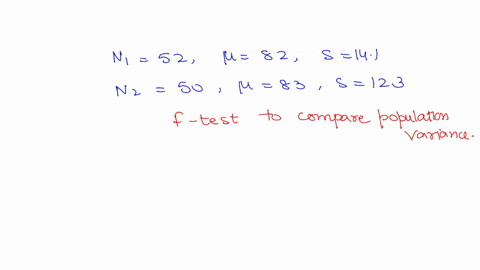 N1 = 52, μ = 82, S = 14.1
N2 = 50, μ = 83, S = 12.3
f-test to compare population
variance.